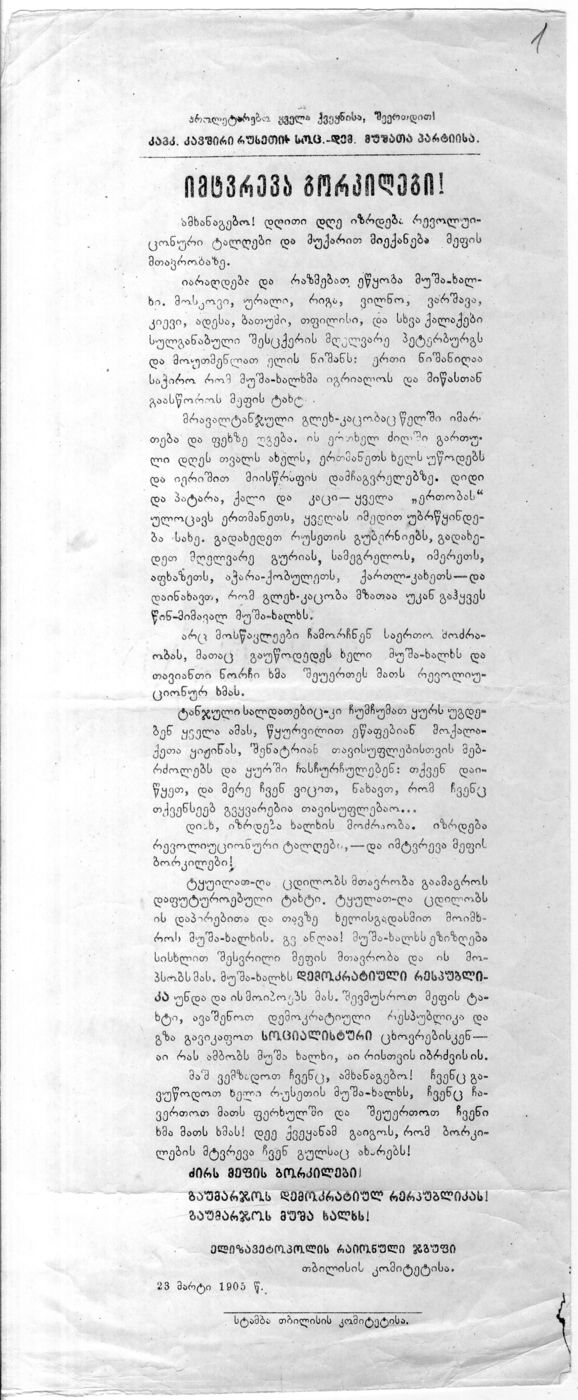 1
პროლეტარებო ყველა ქვეყნისა, შეერთდით!
კავკ. კავშირი რუსეთის სოც.-დემ. მუშათა პარტიისა.
იმტვრევა ბორკილები!
ამხანაგებო! დღითი დღე იზრდება რევოლიუ-
ციონური ტალღები და მუქარით მიექანება მეფის
მთავრობაზე.
იარაღდება და რაზმებათ ეწყობა მუშა-ხალ-
ხი. მოსკოვი, ურალი, რიგა, ვილნო, ვარშავა,
კიევი, ადესა, ბათუმი, თფილისი, და სხვა ქალაქები
სულგანაბული შესცქერის მღელვარე პეტერბურგს
და მოუთმენლათ ელის ნიშანს: ერთი ნიშანიღაა
საჭირო რომ მუშა-ხალხმა იგრიალოს და მიწასთან
გაასწოროს მეფის ტახტი.
მრავალტანჯული გლეხ-კაცობაც წელში იმარ-
თება და ფეხზე დგება. ის ერთხელ ძილში გართუ-
ლი დღეს თვალს ახელს, ერთმანეთს ხელს უწოდებს
და იერიშით მიისწრაფის დამჩაგვრელებზე. დიდი
და პატარა, ქალი და კაცი — ყველა „ერთობას“
ულოცავს ერთმანეთს, ყველას იმედით უბრწყინდე-
ბა სახე. გადახედეთ რუსეთის გუბერნიებს, გადახე-
დეთ მღელვარე გურიას, სამეგრელოს, იმერეთს,
აფხაზეთს, აჭარა-ქობულეთს, ქართლ-კახეთს — და
დაინახავთ, რომ გლეხ-კაცობა მზათაა უკან გაჰყვეს
წინ-მიმავალ მუშა-ხალხს.
არც მოსწავლეები ჩამორჩნენ საერთო მოძრა-
ობას, მათაც გაუწოდეს ხელი მუშა-ხალხს და
თავიანთი ნორჩი ხმა შეუერთეს მათს რევოლიუ-
ციონურ ხმას.
ტანჯული სალდათებიც-კი ჩუმჩუმათ ყურს უგდე-
ბენ ყველა ამას, წყურვილით ეწაფებიან მოქალა-
ქეთა ყიჟინას, შენატრიან თავისუფლებისთვის მებ-
რძოლებს და ყურში ჩასჩურჩულებენ: თქვენ დაი-
წყეთ, და მერე ჩვენ ვიცით, ნახავთ, რომ ჩვენც
თქვენსეებ გვყვარებია თავისუფლებაო...
დიახ, იზრდება ხალხის მოძრაობა. იზრდება
რევოლიუციონური ტალღები, — და იმტვრევა მეფის
ბორკილები!
ტყუილათ-ღა ცდილობს მთავრობა გაამაგროს
დაფუტუროებული ტახტი. ტყულათ-ღა ცდილობს
ის დაპირებითა და თავზე ხელისგადასმით მოიმხ-
როს მუშა-ხალხის. გვიანღაა! მუშა-ხალხს ეზიზღება
სისხლით შესვრილი მეფის მთავრობა და ის მო-
პსობს მას. მუშა-ხალხს დემოკრატიული რესპუბლი-
კა უნდა და ის მოიპოვებს მას. შევმუსროთ მეფის ტა-
ხტი, ავაშენოთ დემოკრატიული რესპუბლიკა და
გზა გავიკაფოთ სოციალისტური ცხოვრებისკენ —
აი რას ამბობს მუშა ხალხი, აი რისთვის იბრძვის ის.
მაშ ვემზადოთ ჩვენც, ამხანაგებო! ჩვენც გა-
ვუწოდოთ ხელი რუსეთის მუშა-ხალხს, ჩვენც ჩა-
ვერთოთ მათს ფერხულში და შეუერთოთ ჩვენი
ხმა მათს ხმას! დეე ქვეყანამ გაიგოს, რომ ბორკი-
ლების მტვრევა ჩვენ გულსაც ახარებს!
ძირს მეფის ბორკილები!
გაუმარჯოს დემოკრატიულ რერპუბლიკას!
გაუმარჯოს მუშა ხალხს!
ელიზავეტოპოლის რაიონული ჯგუფი
თბილისის კომიტეტისა.
23 მარტი 1905 წ.
სტამბა თბილისის კომიტეტისა.